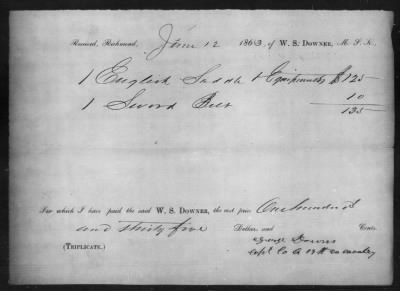 Received, Richmond, June 12 1863, of W. S. Downer, M. S. K.,
1 English Saddle & Equipments $125
1 Sword Belt 10
135
For which I have paid the said W. S. Downer, the cost price One hundred
and thirty five Dollars, and Cents.
George
(TRIPLICATE.) Capt Co A 13th Va Cavalry